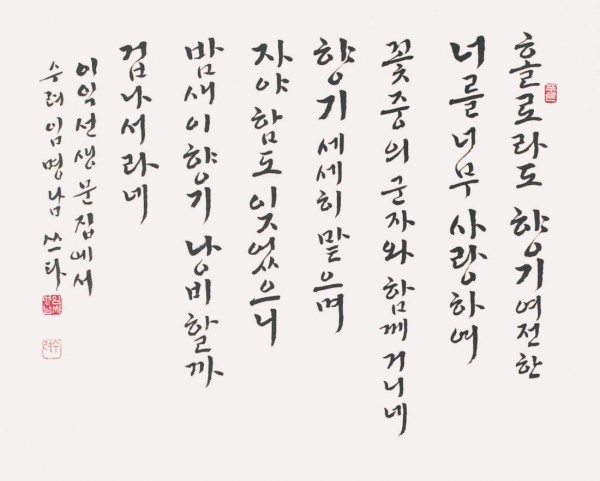 홀로라도 향기 여전한
너를 너무 사랑하여
꽃중의 군자와 함께 거니네
향기 세세히 맡으며
자야 함도 잊었으니
밤새 이 향기 낭비할까
겁나서라네
이익선생 문집에서
수려 임명남 쓰다